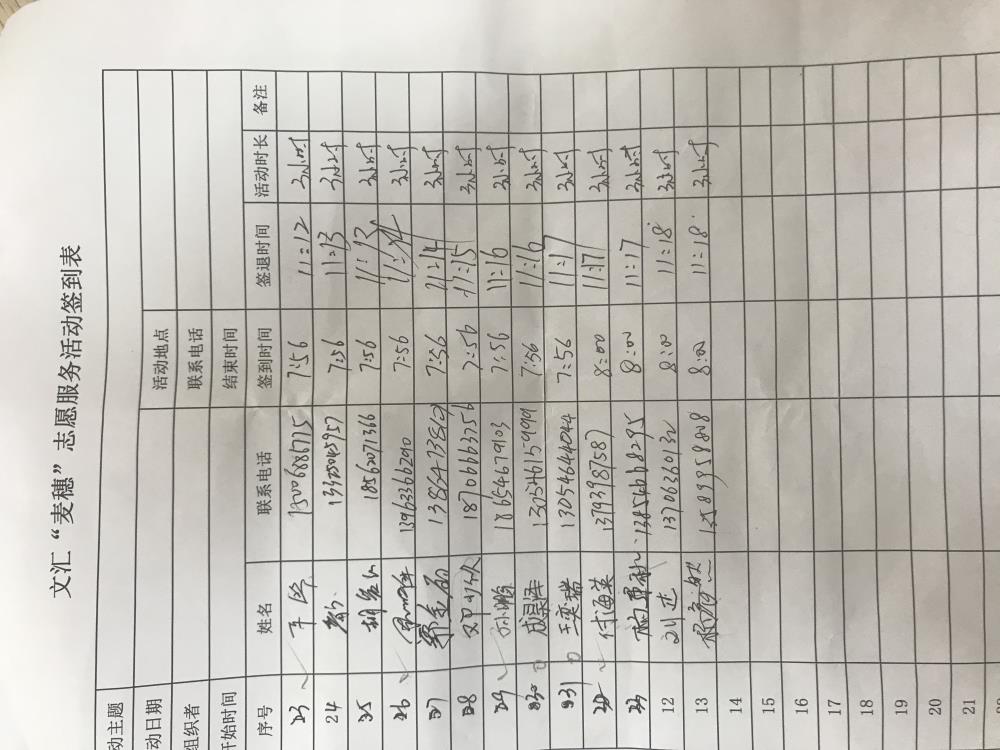 文汇“麦穗”志愿服务活动签到表
动主题
动日期 活动地点
组织者 联系电话
开始时间 结束时间
序号 姓名 联系电话 签到时间 签退时间 活动时长 备注
23 15006885775 7:56 11:12 3小时
24 13325045957 7:56 11:13 3小时
25 18562071366 7:56 11:13 3小时
26 13963366290 7:56 11:14 3小时
27 7:56 11:14 3小时
28 18706663756 7:56 11:15 3小时
29 孙鹏 18654679103 7:56 11:16 3小时
30 成梁泽 13054615999 7:56 11:16 3小时
31 王奕瑞 13054644044 7:56 11:17 3小时
付海英 13793987587 8:00 11:17 3小时
13854668295 8:00 11:17 3小时
12 刘芷 13706360132 8:00 11:18 3小时
13 13589959808 8:00 11:18 3小时
14
15
16
17
18
19
20
21